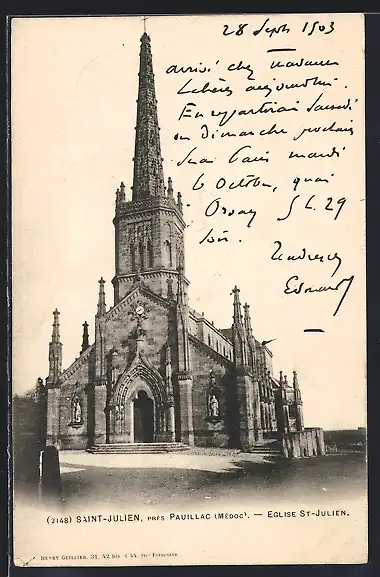 28 Sept 1903
arrivé chez madame
aujourdhui.
En repartirai Samedi
ou dimanche prochain
Serai Paris mardi
6 Octobre, quai
Orsay
soir.
Edouard
(2148) SAINT-JULIEN, PRÈS PAUILLAC (MÉDOC). — EGLISE ST-JULIEN.
HENRY GUILLIER, 31, 42 bis